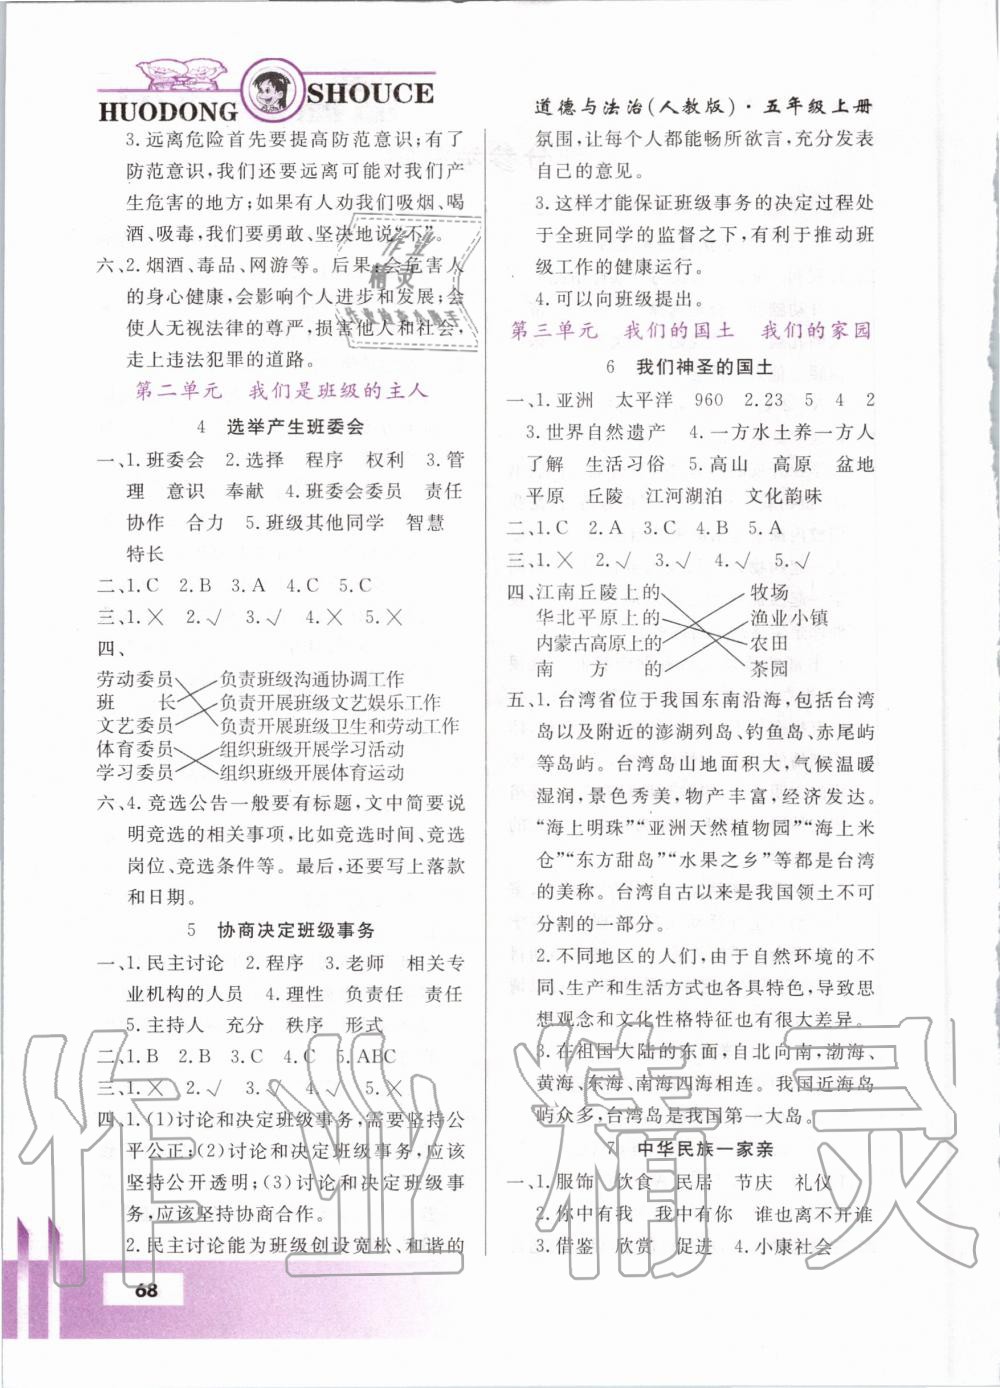 HUODONG SHOUCE
3.远离危险首先要提高防范意识；有了
防范意识，我们还要远离可能对我们产
生危害的地方；如果有人劝我们吸烟、喝
酒、吸毒，我们要勇敢、坚决地说“不”。
六、2.烟酒、毒品、网游等。后果：会危害人
的身心健康，会影响个人进步和发展；会
使人无视法律的尊严，损害他人和社会，
走上违法犯罪的道路。
第二单元 我们是班级的主人
4 选举产生班委会
一、1.班委会 2.选择 程序 权利 3.管
理 意识 奉献 4.班委会委员 责任
协作 合力 5.班级其他同学 智慧
特长
二、1.C 2.B 3.A 4.C 5.C
三、1.✕ 2.√ 3.✕ 4.✕ 5.✕
四、
劳动委员 负责班级沟通协调工作
班 长 负责开展班级文艺娱乐工作
文艺委员 负责开展班级卫生和劳动工作
体育委员 组织班级开展学习活动
学习委员 组织班级开展体育运动
六、4.竞选公告一般要有标题，文中简要说
明竞选的相关事项，比如竞选时间、竞选
岗位、竞选条件等。最后，还要写上落款
和日期。
5 协商决定班级事务
一、1.民主讨论 2.程序 3.老师 相关专
业机构的人员 4.理性 负责任 责任
5.主持人 充分 秩序 形式
二、1.B 2.B 3.C 4.C 5.ABC
三、1.✕ 2.√ 3.√ 4.√ 5.✕
四、1.(1)讨论和决定班级事务，需要坚持公
平公正；(2)讨论和决定班级事务，应该
坚持公开透明；(3)讨论和决定班级事
务，应该坚持协商合作。
2.民主讨论能为班级创设宽松、和谐的
68
道德与法治(人教版)·五年级上册
氛围，让每个人都能畅所欲言，充分发表
自己的意见。
3.这样才能保证班级事务的决定过程处
于全班同学的监督之下，有利于推动班
级工作的健康运行。
4.可以向班级提出。
第三单元 我们的国土 我们的家园
6 我们神圣的国土
一、1.亚洲 太平洋 960 2.23 5 4 2
3.世界自然遗产 4.一方水土养一方人
了解 生活习俗 5.高山 高原 盆地
平原 丘陵 江河湖泊 文化韵味
二、1.C 2.A 3.C 4.B 5.A
三、1.✕ 2.√ 3.√ 4.√ 5.√
四、江南丘陵上的 牧场
华北平原上的 渔业小镇
内蒙古高原上的 农田
南方的 茶园
五、1.台湾省位于我国东南沿海，包括台湾
岛以及附近的澎湖列岛、钓鱼岛、赤尾屿
等岛屿。台湾岛山地面积大，气候温暖
湿润，景色秀美，物产丰富，经济发达。
“海上明珠”“亚洲天然植物园”“海上米
仓”“东方甜岛”“水果之乡”等都是台湾
的美称。台湾自古以来是我国领土不可
分割的一部分。
2.不同地区的人们，由于自然环境的不
同，生产和生活方式也各具特色，导致思
想观念和文化性格特征也有很大差异。
3.在祖国大陆的东面，自北向南，渤海、
黄海、东海、南海四海相连。我国近海岛
屿众多，台湾岛是我国第一大岛。
7 中华民族一家亲
一、1.服饰 饮食 民居 节庆 礼仪
2.你中有我 我中有你 谁也离不开谁
3.借鉴 欣赏 促进 4.小康社会
作业精灵